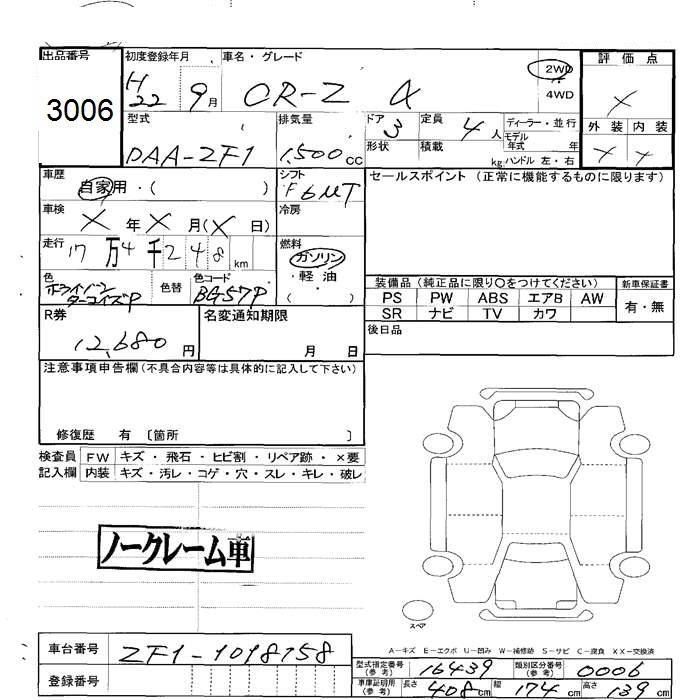 出品番号
3006
初度登録年月
H22 9月
車名・グレード
CR-Z α
2WD
4WD
評価点
X
外装 内装
X X
型式
DAA-ZF1
排気量
1,500cc
ドア 3
形状
定員 4人
積載 kg
ディーラー・並行
モデル年式 年
ハンドル 左・右
車歴
自家用・( )
シフト
F6MT
セールスポイント (正常に機能するものに限ります)
車検
X年X月(X日)
冷房
走行
17万4千248km
燃料
ガソリン
・軽油
( )
色
ホライゾンターコイズP
色替
色コード
BG57P
装備品 (純正品に限り〇をつけてください)
新車保証書
PS PW ABS エアB AW
SR ナビ TV カワ
有・無
R券
12,680円
名変通知期限
月 日
後日品
注意事項申告欄 (不具合内容等は具体的に記入して下さい)
修復歴 有 〔箇所 〕
検査員記入欄
FW キズ・飛石・ヒビ割・リペア跡・×要
内装 キズ・汚レ・コゲ・穴・スレ・キレ・破レ
ノークレーム車
スペア
A-キズ E-エクボ U-凹み W-補修跡 S-サビ C-腐食 XX-交換済
車台番号
ZF1-1018758
登録番号
型式指定番号(参考) 16439
類別区分番号(参考) 0006
車庫証明用(参考) 長さ 408cm 幅 174cm 高さ 139cm